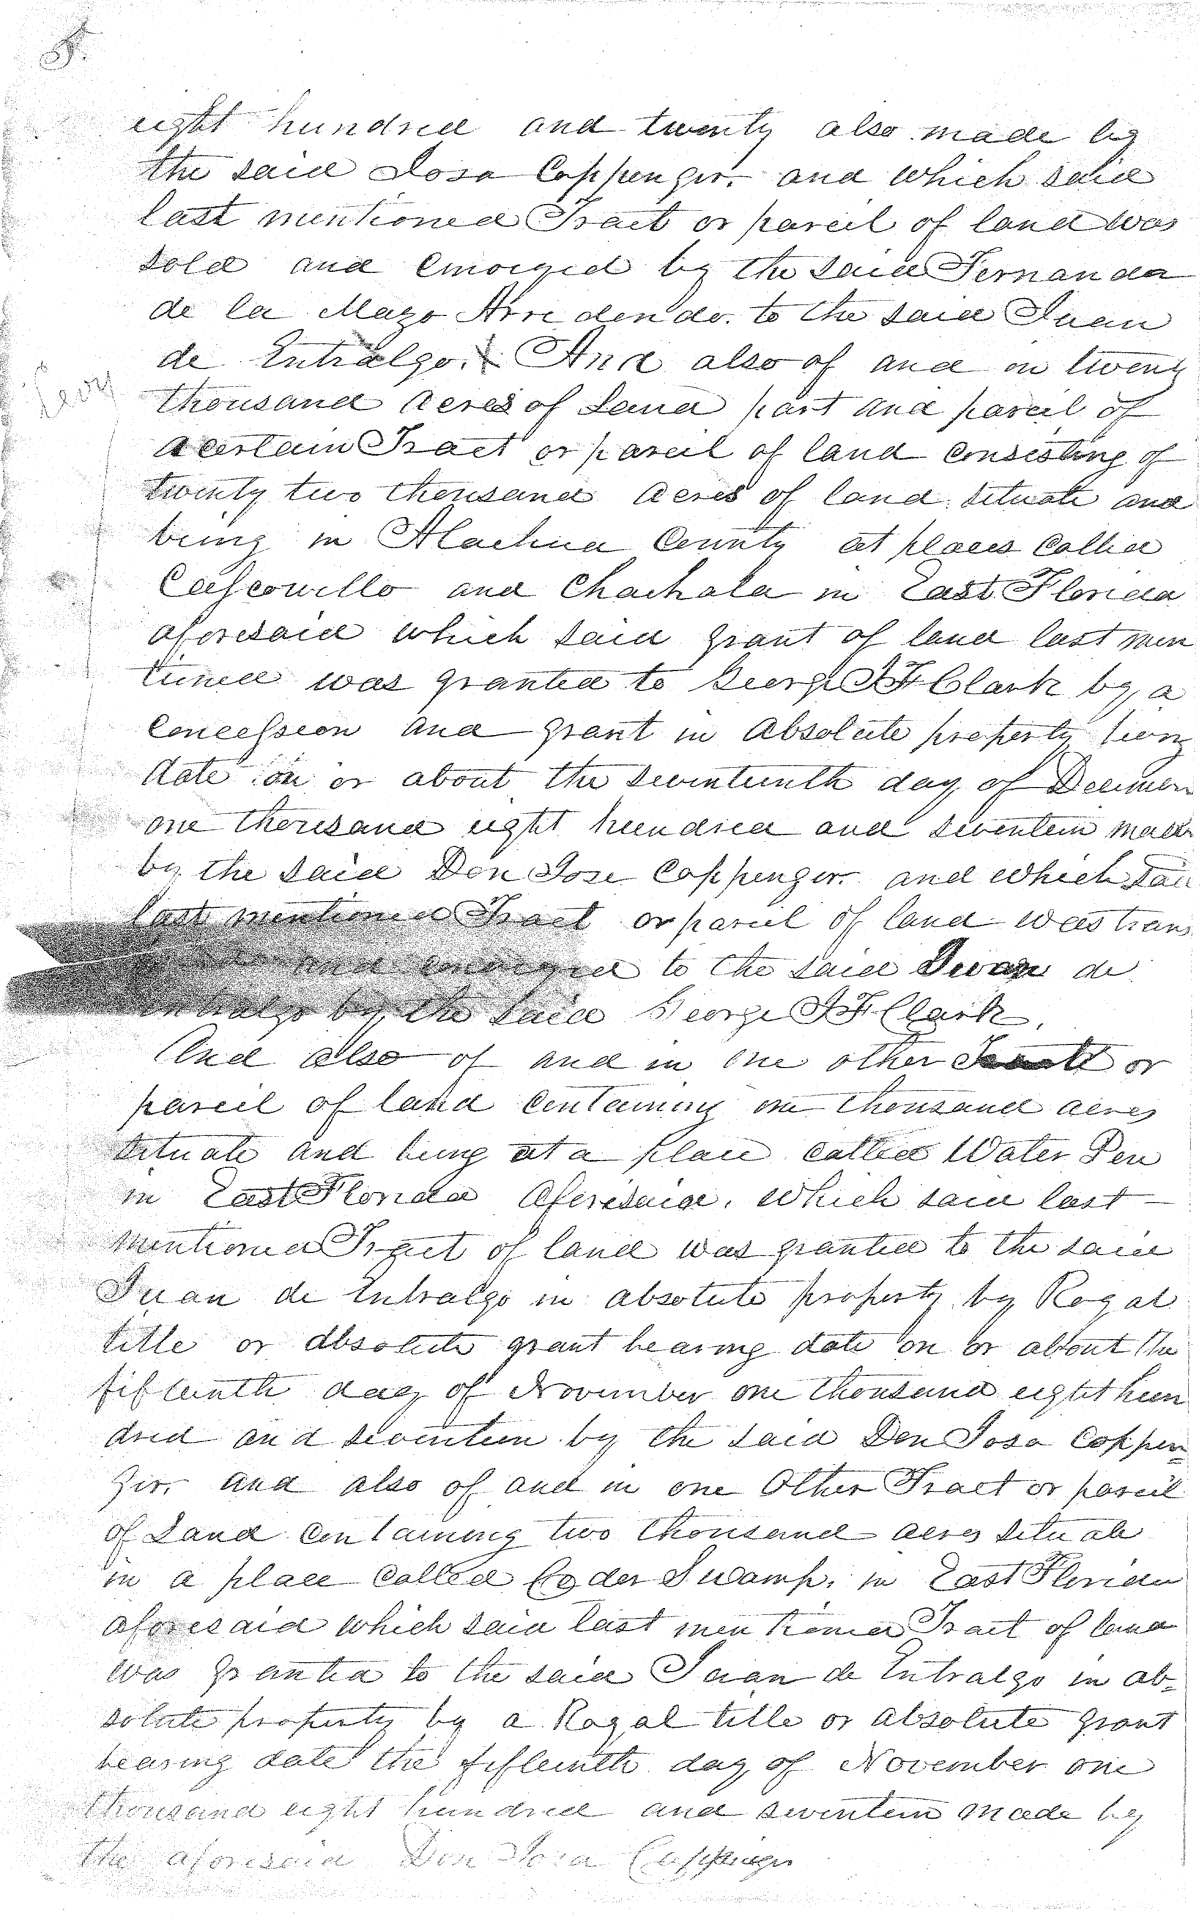 5.
eight hundred and twenty also made by
the said Josa Coppenger. and which said
last mentioned Tract or parcil of land was
sold and convoyed by the said Fernanda
de la Mazo Arredendo. to the said Juan
de Entralgo. And also of and in twenty
Levy
thousand acres of Land part and parcil of
a certain Tract or parcil of land consisting of
twenty two thousand acres of land situate and
being in Alachua County at places called
Cuscowillo and Chachala in East Florida
aforesaid which said grant of land last men
tioned was granted to George J F Clark by a
concession and grant in absolute property being
date on or about the seventeenth day of
one thousand eight hundred and seventeen made
by the said Don Jose Coppenger. and which said
last mentioned Tract or parcil of land was trans
and convoyed to the said Juan de
Entralgo by the said George J F Clark.
And also of and in one other or
parcil of land containing one thousand acres
situate and being at a place called Water Pen
in East Florida aforesaid. which said last
mentioned Tract of land was granted to the said
Juan de Entralgo in absolute property by Rogal
title or absolute grant bearing date on or about the
fifteenth day of November one thousand eight hun
dred and seventeen by the said Don Josa Coppen=
ger. and also of and in one Other Tract or parcil
of Land containing two thousand acres situate
in a place called Ceder Swamp. in East Florida
aforesaid which said last mentioned Tract of land
was granted to the said Juan de Entralgo in ab=
solute property by a Rogal title or absolute grant
bearing date the fifteenth day of November one
thousand eight hundred and seventeen made by
the aforesaid Don Josa Coppinger